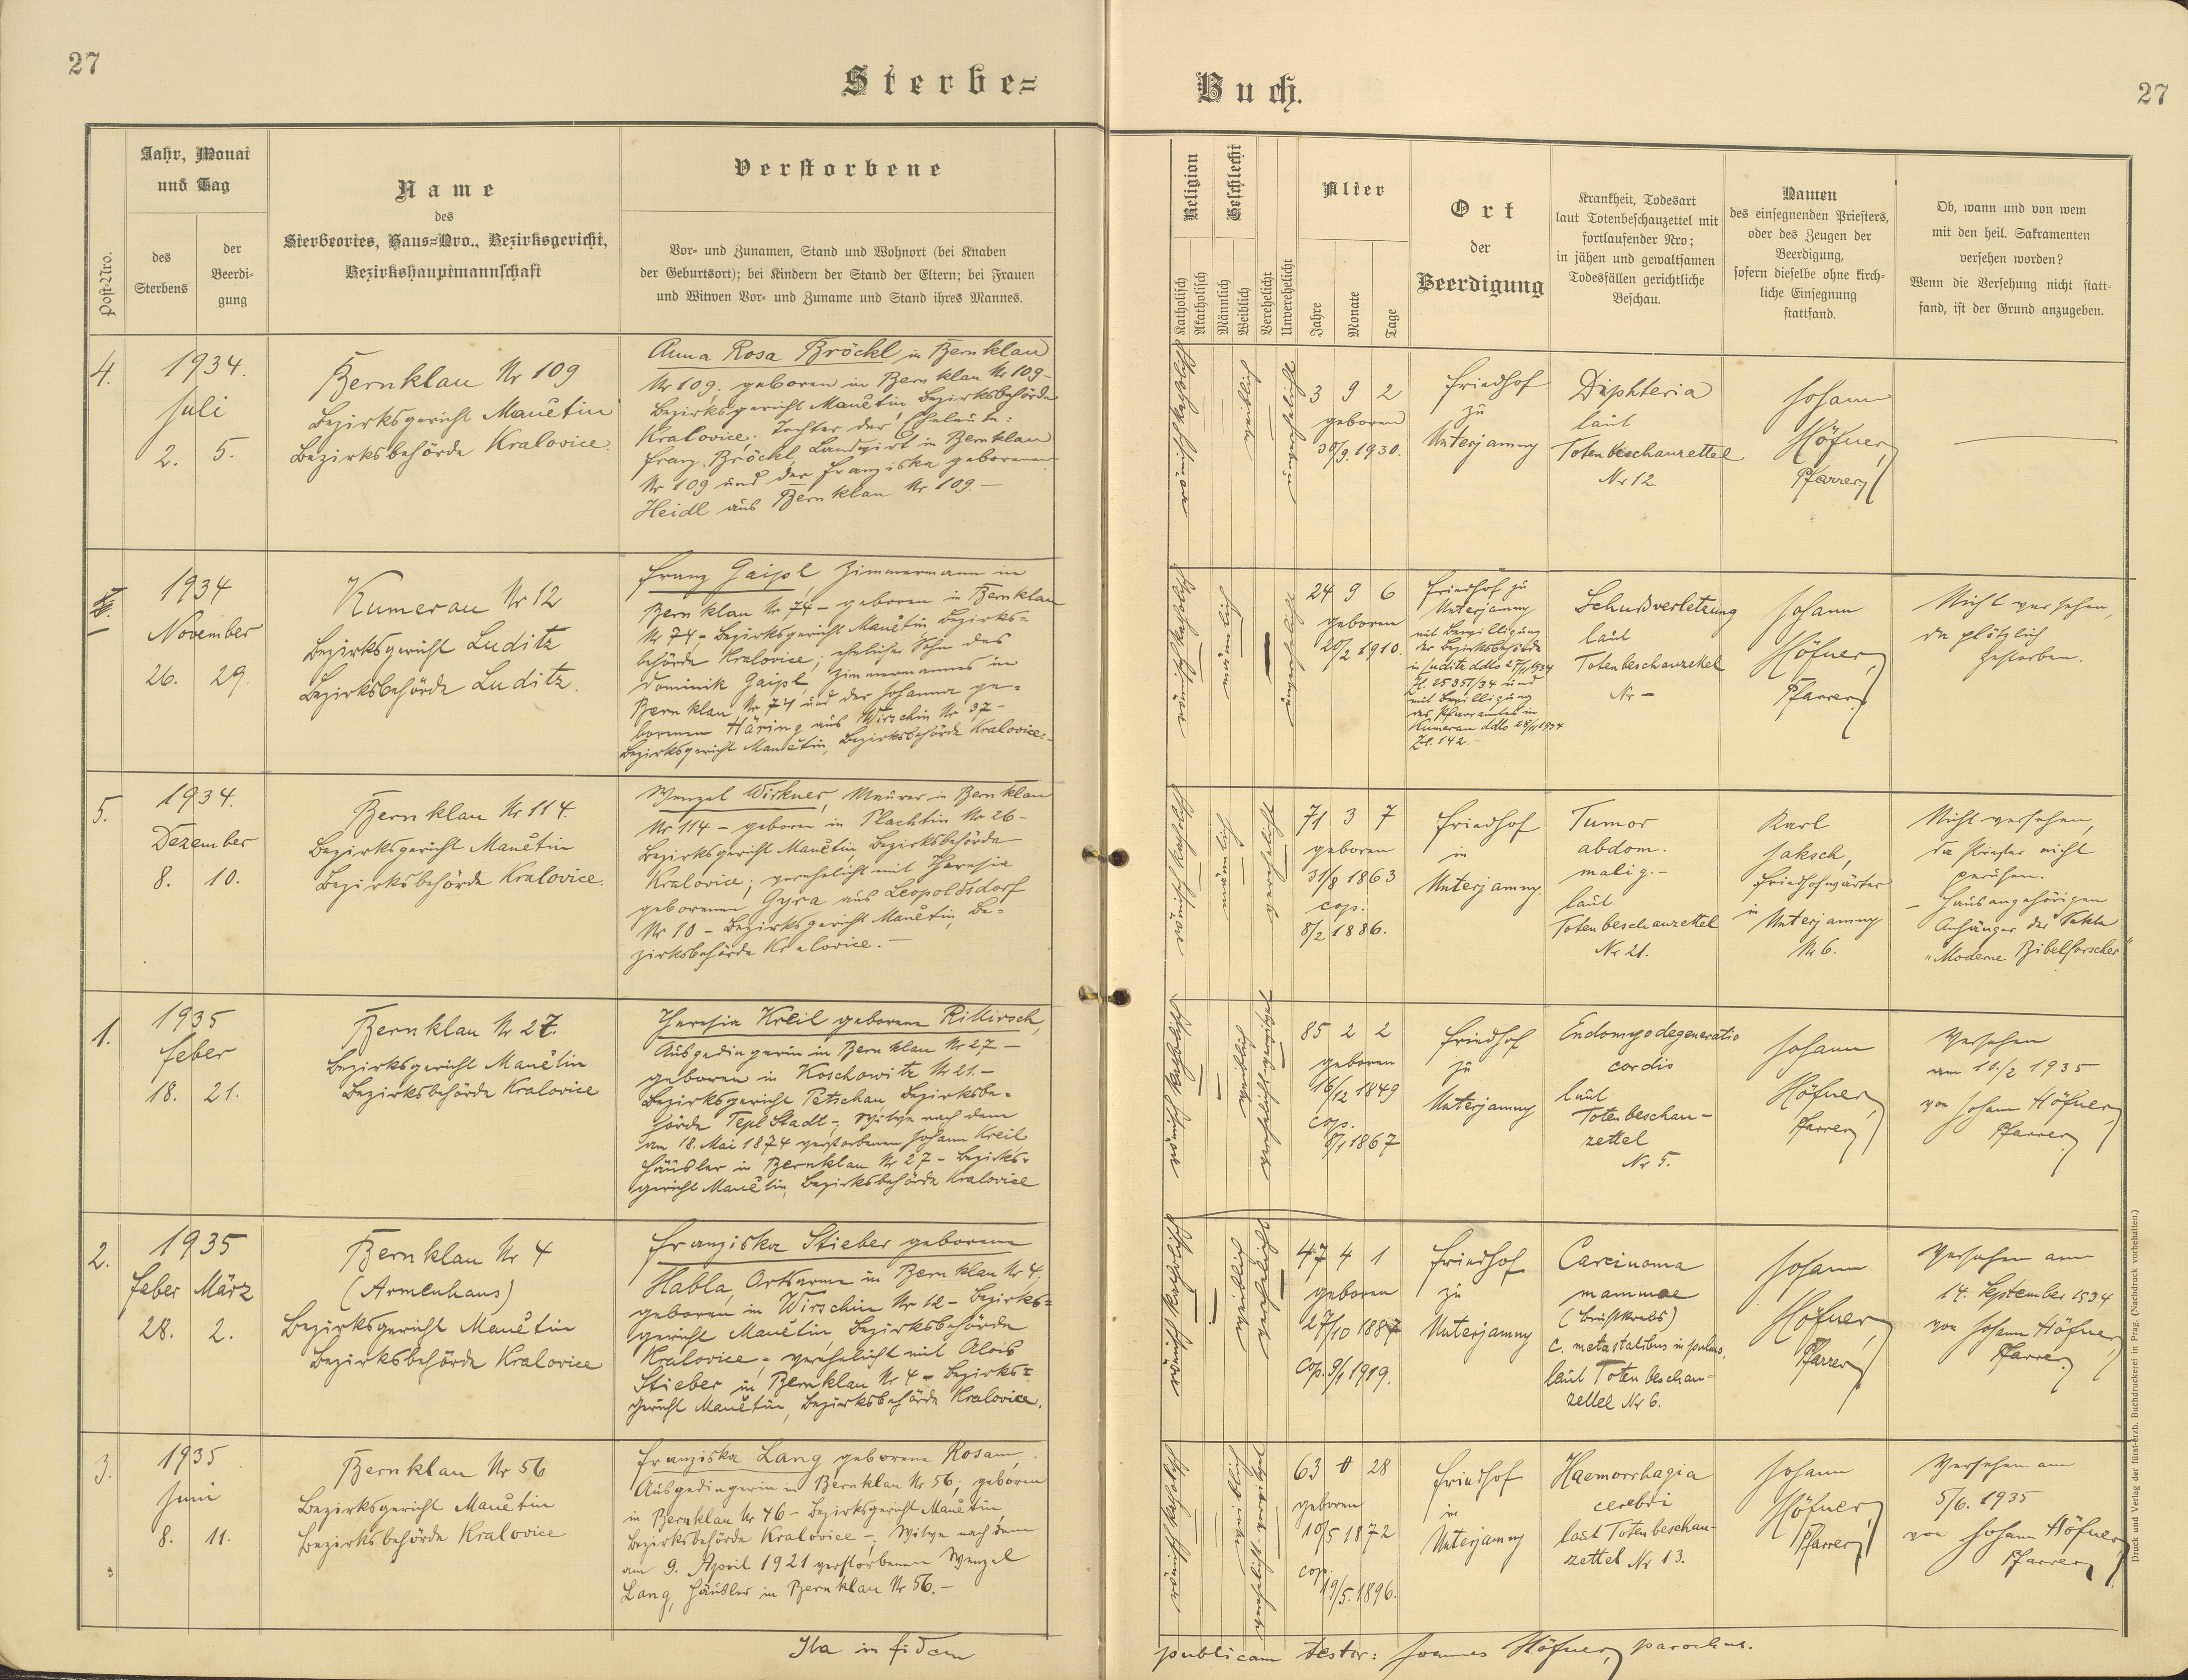 27
Sterbe=
Buch.
27
Post-Nro.
Jahr, Monat
und Tag
des
Sterbens
der
Beerdi-
gung
Name
des
Sterbeortes, Haus=Nro., Bezirksgericht,
Bezirkshauptmannschaft
Verstorbene
Vor- und Zunamen, Stand und Wohnort (bei Knaben
der Geburtsort); bei Kindern der Stand der Eltern; bei Frauen
und Witwen Vor- und Zuname und Stand ihres Mannes.
Religion
Katholisch
Akatholisch
Geschlecht
Männlich
Weiblich
Verehelicht
Unverehelicht
Alter
Jahre
Monate
Tage
Ort
der
Beerdigung
Krankheit, Todesart
laut Totenbeschauzettel mit
fortlaufender Nro;
in jähen und gewaltsamen
Todesfällen gerichtliche
Beschau.
Namen
des einsegnenden Priesters,
oder des Zeugen der
Beerdigung,
sofern dieselbe ohne kirch-
liche Einsegnung
stattfand.
Ob, wann und von wem
mit den heil. Sakramenten
versehen worden?
Wenn die Versehung nicht statt-
fand, ist der Grund anzugeben.
4.
1934.
Juli
2. 5.
Bernklau Nr 109
Bezirksgericht Manětin
Bezirksbehörde Kralovice.
Anna Rosa Bröckl, in Bernklau
Nr 109; geboren in Bernklau Nr 109-
Bezirksgericht Manětin, Bezirksbehörde
Kralovice; Tochter der Eheleute:
Franz Bröckl, Landwirt in Bernklau
Nr 109 und der Franziska geborenen
Heidl aus Bernklau Nr 109.—
römisch katholisch
weiblich
unverehelicht
3 9 2
geboren
30/9.1930.
Friedhof
zu
Unterjamny
Diphteria
laut
Totenbeschauzettel
Nr 12.
Johann
Höfner,
Pfarrer
—
1934
November
26. 29.
Kumerau Nr 12
Bezirksgericht Luditz
Bezirksbehörde Luditz.
Franz Gaipl Zimmermann in
Bernklau Nr 74 - geboren in Bernklau
Nr 74 - Bezirksgericht Manětin Bezirks=
behörde Kralovice; ehelicher Sohn des
Dominik Gaipl, Zimmermannes in
Bernklau Nr 74 und der Johanna ge=
borenen Häring aus Wirschin Nr 37-
Bezirksgericht Manětin, Bezirksbehörde Kralovice.-
römisch katholisch
männlich
unverehelicht
24 9 6
geboren
20/2 1910.
Friedhof zu
Unterjamny
mit Bewilligung
der Bezirksbehörde
in Luditz ddto 27/11 1934
Zl. 2535/34 und
mit Bewilligung
des Pfarramtes in
Kumerau ddto 28/11 1934
Zl. 142.-
Schußverletzung
laut
Totenbeschauzettel
Nr —
Johann
Höfner,
Pfarrer
Nicht versehen,
da plötzlich
gestorben.
5.
1934.
Dezember
8. 10.
Bernklau Nr 114.
Bezirksgericht Manětin
Bezirksbehörde Kralovice.
Wenzel Wirkner, Maurer in Bernklau
Nr 114 - geboren in Plachtin Nr 26-
Bezirksgericht Manětin, Bezirksbehörde
Kralovice; verehelicht mit Theresia
geborenen Gyra aus Leopoldsdorf
Nr 10 - Bezirksgericht Manětin, Be=
zirksbehörde Kralovice.—
römisch katholisch
männlich
verehelicht
71 3 7
geboren
31/8 1863
cop.
8/2 1886.
Friedhof
in
Unterjamny.
Tumor
abdom.
malig.-
laut
Totenbeschauzettel
Nr 21.
Karl
Jaksch,
Friedhofwärter
in Unterjamny
Nr 6.
Nicht versehen,
da Priester nicht
gerufen.
- Hausangehörigen
Anhänger der Sekte
"Moderne Bibelforscher"
1.
1935
Feber
18. 21.
Bernklau Nr 27.
Bezirksgericht Manětin
Bezirksbehörde Kralovice
Theresia Kreil geborene Rillirsch,
Ausgedingerin in Bernklau Nr 27 —
geboren in Koschowitz Nr 21.-
Bezirksgericht Petschau Bezirksbe=
hörde Tepl Stadt; Witwe nach dem
am 18. Mai 1874 verstorbenen Johann Kreil
Häusler in Bernklau Nr 27 - Bezirks=
gericht Manětin, Bezirksbehörde Kralovice
römisch katholisch
weiblich
verehelicht gewesen
85 2 2
geboren
16/12 1849
cop.
8/1 1867
Friedhof
zu
Unterjamny
Endomyodegeneratio
cordis
laut
Totenbeschau-
zettel
Nr 5.
Johann
Höfner,
Pfarrer
Versehen
am 10./2 1935
von Johann Höfner,
Pfarrer
2.
1935
Feber März
28. 2.
Bernklau Nr 4
(Armenhaus)
Bezirksgericht Manětin
Bezirksbehörde Kralovice
Franziska Stieber geborene
Habla, Ortsarme in Bernklau Nr 4,
geboren in Wirschin Nr 12 - Bezirks=
gericht Manětin, Bezirksbehörde
Kralovice; verehelicht mit Alois
Stieber in Bernklau Nr 4 - Bezirks=
gericht Manětin, Bezirksbehörde Kralovice.
römisch katholisch
weiblich
verehelicht
47 4 1
geboren
27/10 1887
cop. 9/1 1919.
Friedhof
zu
Unterjamny
Carcinoma
mammae
(Brustkrebs)
c. metastatibus in pulmo.
laut Totenbeschau=
zettel Nr 6.
Johann
Höfner,
Pfarrer
Versehen am
14. September 1934
von Johann Höfner,
Pfarrer
3.
1935
Juni
8. 11.
Bernklau Nr 56
Bezirksgericht Manětin
Bezirksbehörde Kralovice
Franziska Lang geborene Rosam,
Ausgedingerin in Bernklau Nr 56; geboren
in Bernklau Nr 46 - Bezirksgericht Manětin,
Bezirksbehörde Kralovice —, Witwe nach dem
am 9. April 1921 verstorbenen Wenzel
Lang, Häusler in Bernklau Nr 56.—
römisch katholisch
weiblich
verehelicht gewesen
63 0 28
geboren
10/5 1872
cop.
19/5.1896.
Friedhof
in
Unterjamny
Haemorrhagia
cerebri
laut Totenbeschau-
zettel Nr 13.
Johann
Höfner,
Pfarrer
Versehen am
5/6. 1935
von Johann Höfner,
Pfarrer
Ita in fidem
publicam testor: Joannes Höfner, parochus.
Druck und Verlag der fürst-erzb. Buchdruckerei in Prag. (Nachdruck vorbehalten.)